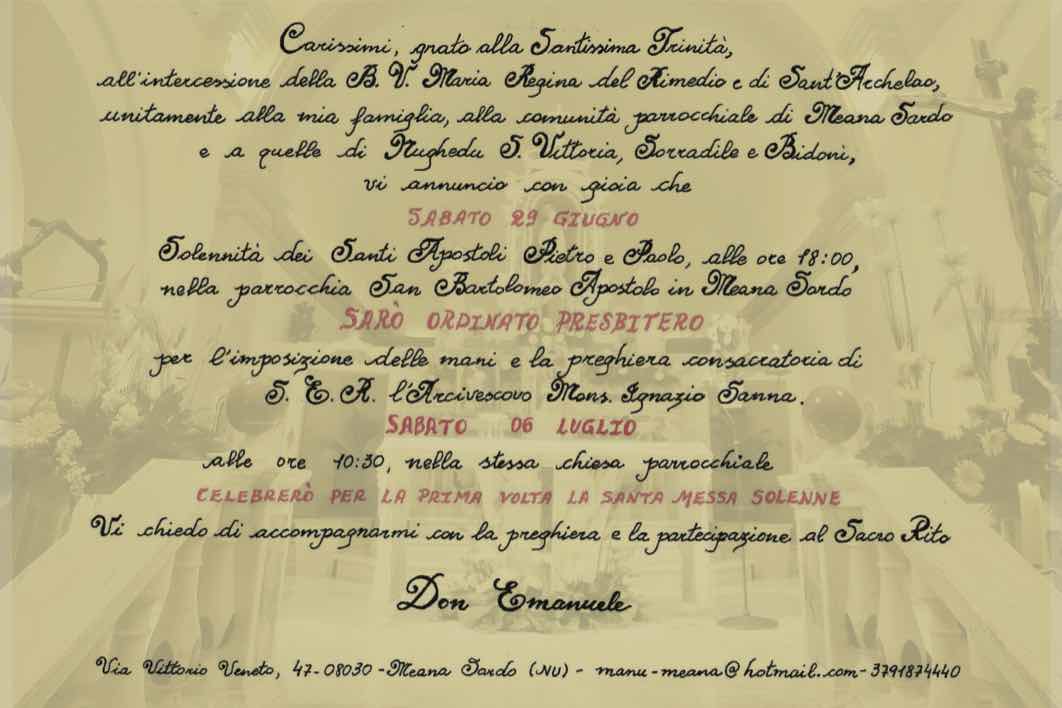 Carissimi, grato alla Santissima Trinità,
all'intercessione della B. V. Maria Regina del Rimedio e di Sant'Archelao,
unitamente alla mia famiglia, alla comunità parrocchiale di Meana Sardo
e a quelle di Nughedu S. Vittoria, Sorradile e Bidonì,
vi annuncio con gioia che
SABATO 29 GIUGNO
Solennità dei Santi Apostoli Pietro e Paolo, alle ore 18:00,
nella parrocchia San Bartolomeo Apostolo in Meana Sardo
SARÒ ORDINATO PRESBITERO
per l'imposizione delle mani e la preghiera consacratoria di
S. E. R. l'Arcivescovo Mons. Ignazio Sanna.
SABATO 06 LUGLIO
alle ore 10:30, nella stessa chiesa parrocchiale
CELEBRERÒ PER LA PRIMA VOLTA LA SANTA MESSA SOLENNE
Vi chiedo di accompagnarmi con la preghiera e la partecipazione al Sacro Rito
Don Emanuele
Via Vittorio Veneto, 47-08030-Meana Sardo (NU) - manu-meana@hotmail..com-3791874440